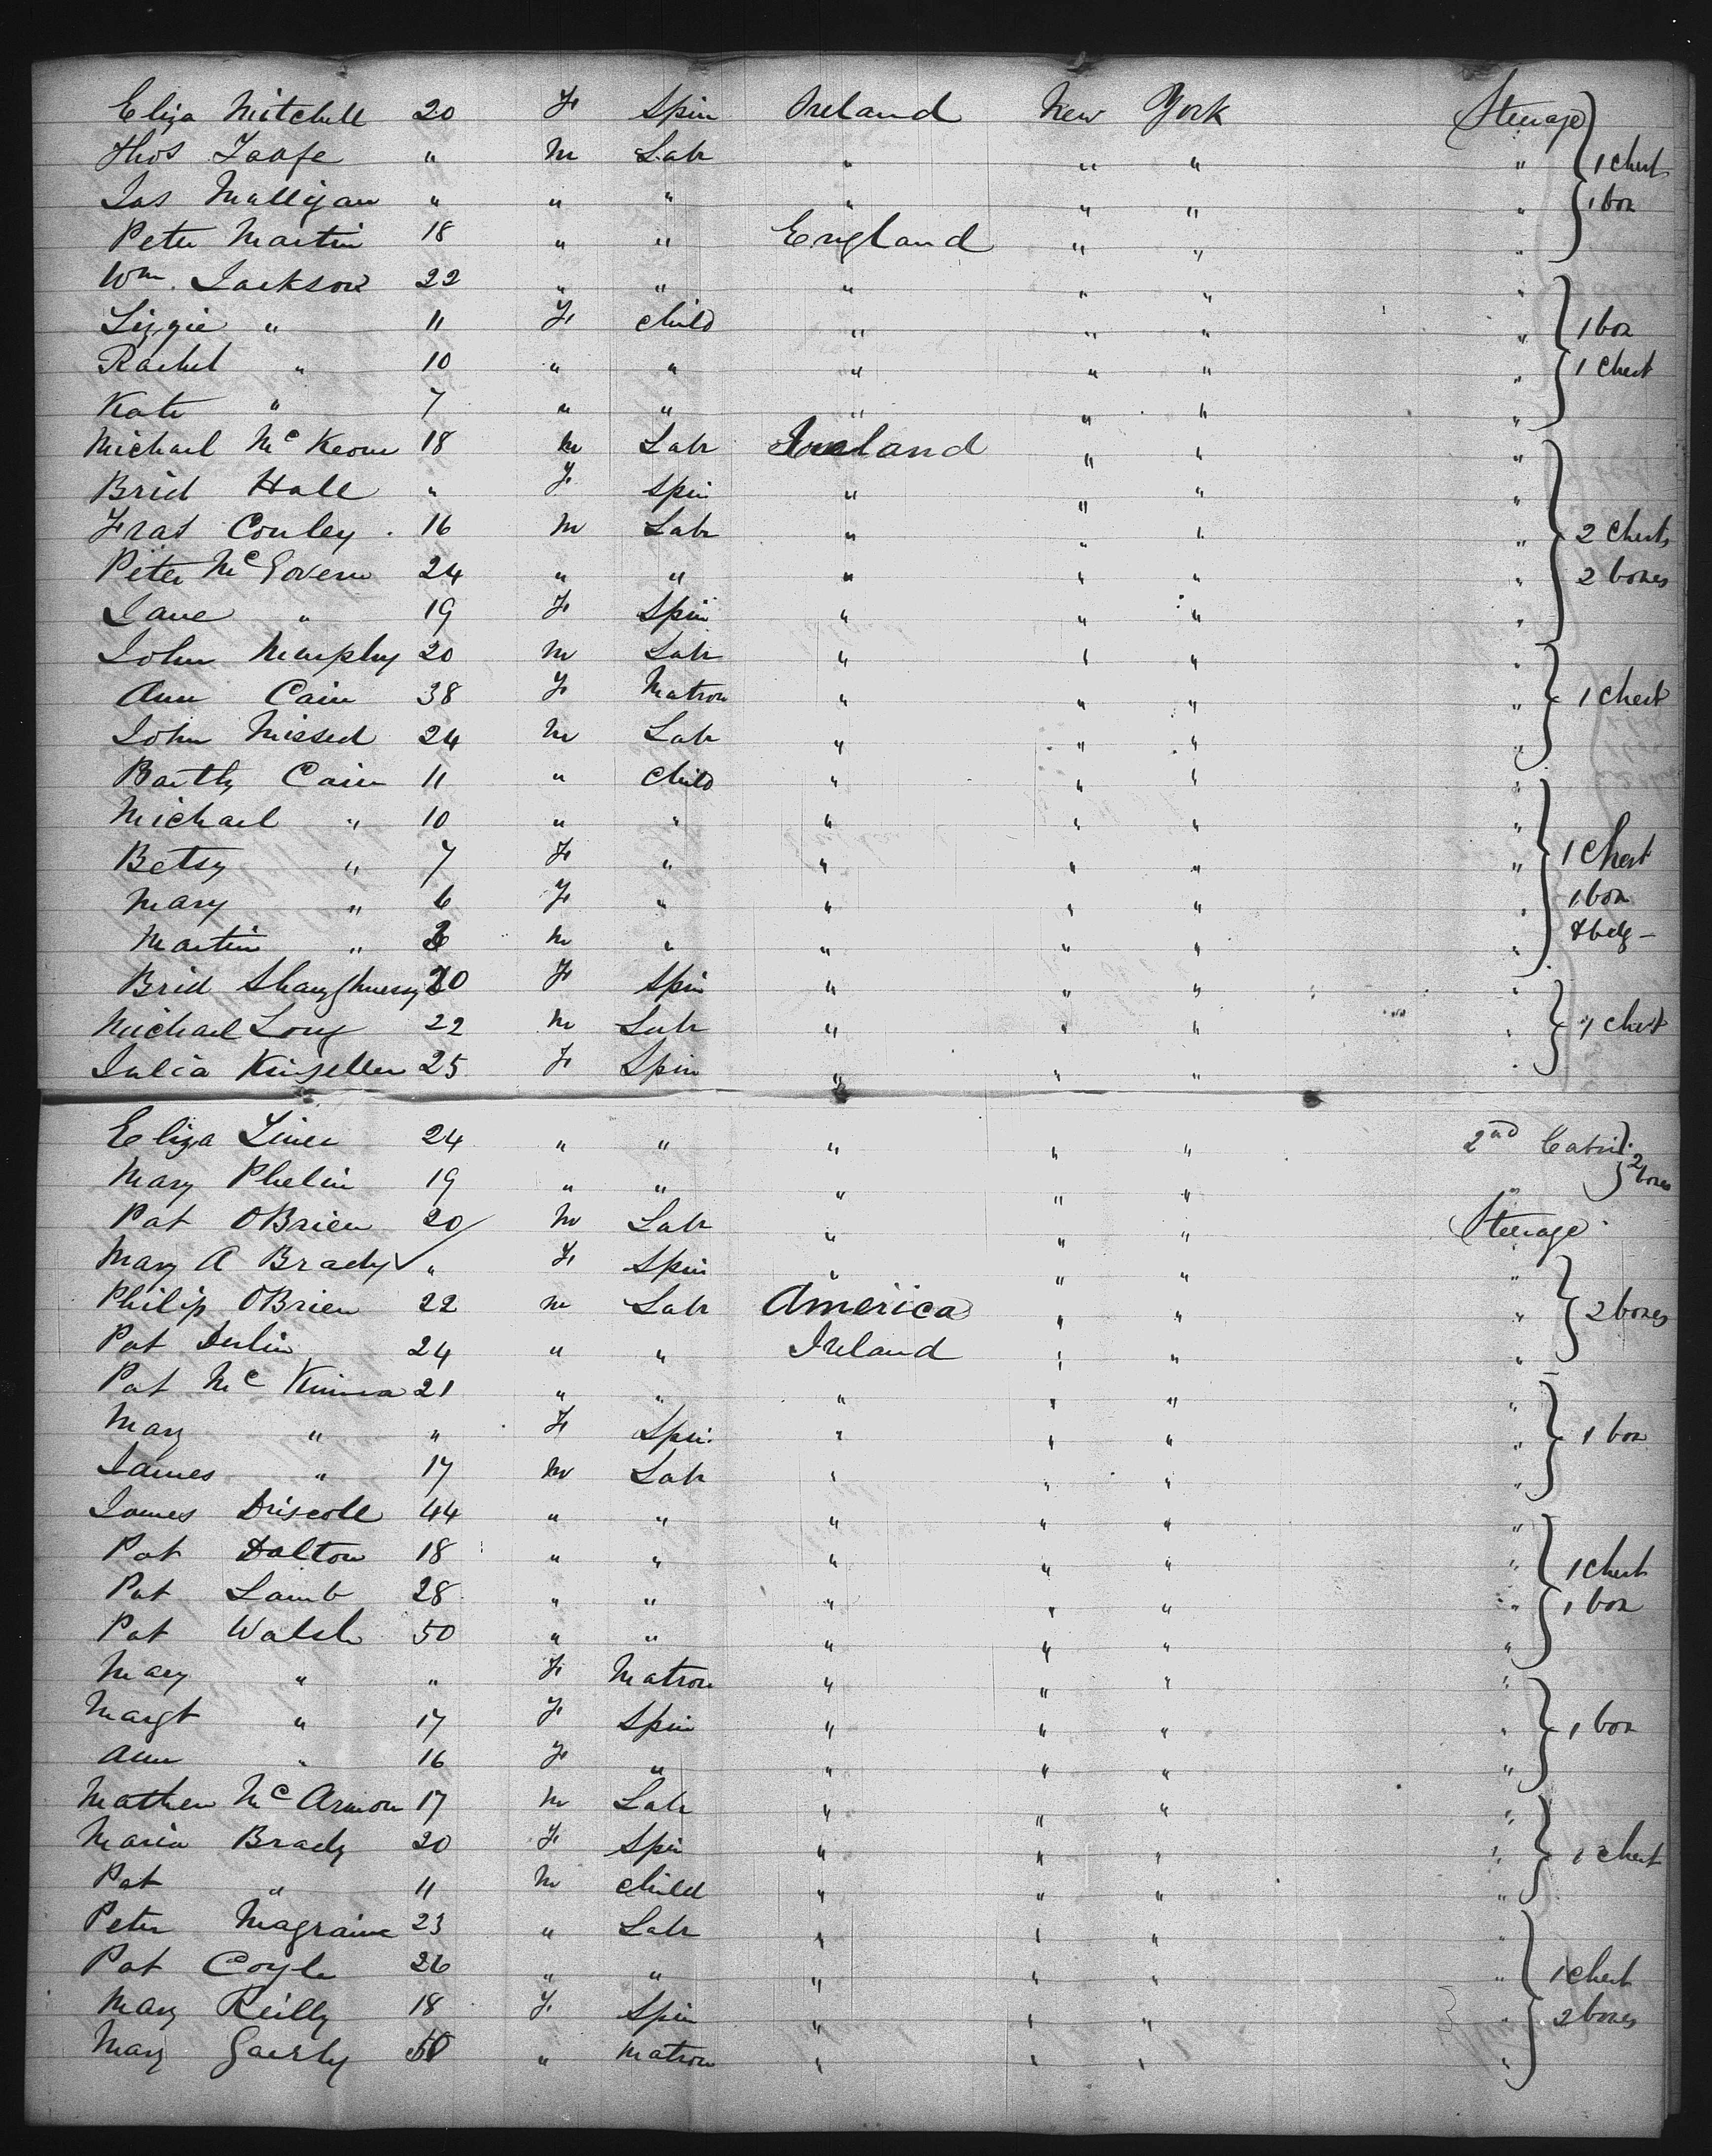 Eliza Mitchell 20 F Spin Ireland New York Steerage
Thos Taafe " M Labr " " " " 1 chest
Jas Mulligan " " " " " " " 1 box
Peter Martin 18 " " England " " "
Wm. Jackson 22 " " " " " "
Lizzie " 11 F child " " " " 1 box
Rachel " 10 " " " " " " 1 chest
Kate " 7 " " " " " "
Michael McKeown 18 M Labr Ireland " " "
Brid Hall " F Spin " " " "
Fras Conley 16 M Labr " " " " 2 chests
Peter McGovern 24 " " " " " " 2 boxes
Jane " 19 F Spin " " " "
John Murphy 20 M Labr " " " "
Ann Cain 38 F Matron " " " " 1 chest
John Missed 24 M Labr " " " "
Barthy Cain 11 " child " " " "
Michael " 10 " " " " " "
Betsy " 7 F " " " " " 1 chest
Mary " 6 F " " " " " 1 box
Martin " M " " " " " & bdg
Brid Shaughnessy 20 F Spin " " " "
Michael Long 22 M Labr " " " " 1 chest
Julia Kinseller 25 F Spin " " " "
Eliza 24 " " " " " 2nd Cabin 2
Mary Phelin 19 " " " " " " boxes
Pat OBrien 20 M Labr " " " Steerage
Mary A Brady " F Spin " " " "
Philip OBrien 22 M Labr America " " " 2 boxes
Pat Devlin 24 " " Ireland " " "
Pat McKinna 21 " " " " " "
Mary " " F Spin " " " " 1 box
James " 17 M Labr " " " "
James Driscoll 44 " " " " " "
Pat Dalton 18 " " " " " " 1 chest
Pat Lamb 28 " " " " " " 1 box
Pat Walsh 50 " " " " " "
Mary " " F Matron " " " "
Margt " 17 F Spin " " " " 1 box
Ann " 16 F " " " " "
Mathew McArmon 17 M Labr " " " "
Maria Brady 20 F Spin " " " " 1 chest
Pat " 11 M child " " " "
Peter Magraine 23 " Labr " " " "
Pat Coyle 26 " " " " " " 1 chest
Mary Reilly 18 F Spin " " " " 2 boxes
Mary 50 " Matron " " " "